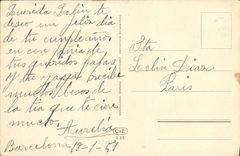 Querida Lolin te
deseo un feliz dia
de tu cumpleaños
en conpañia de
tus queridos papas
y tu recibe
muchos besos de
la tia que te ciere
mucho
Aurelia
Barcelona 19-1-51
Sta
Lolin Diaz
Paris